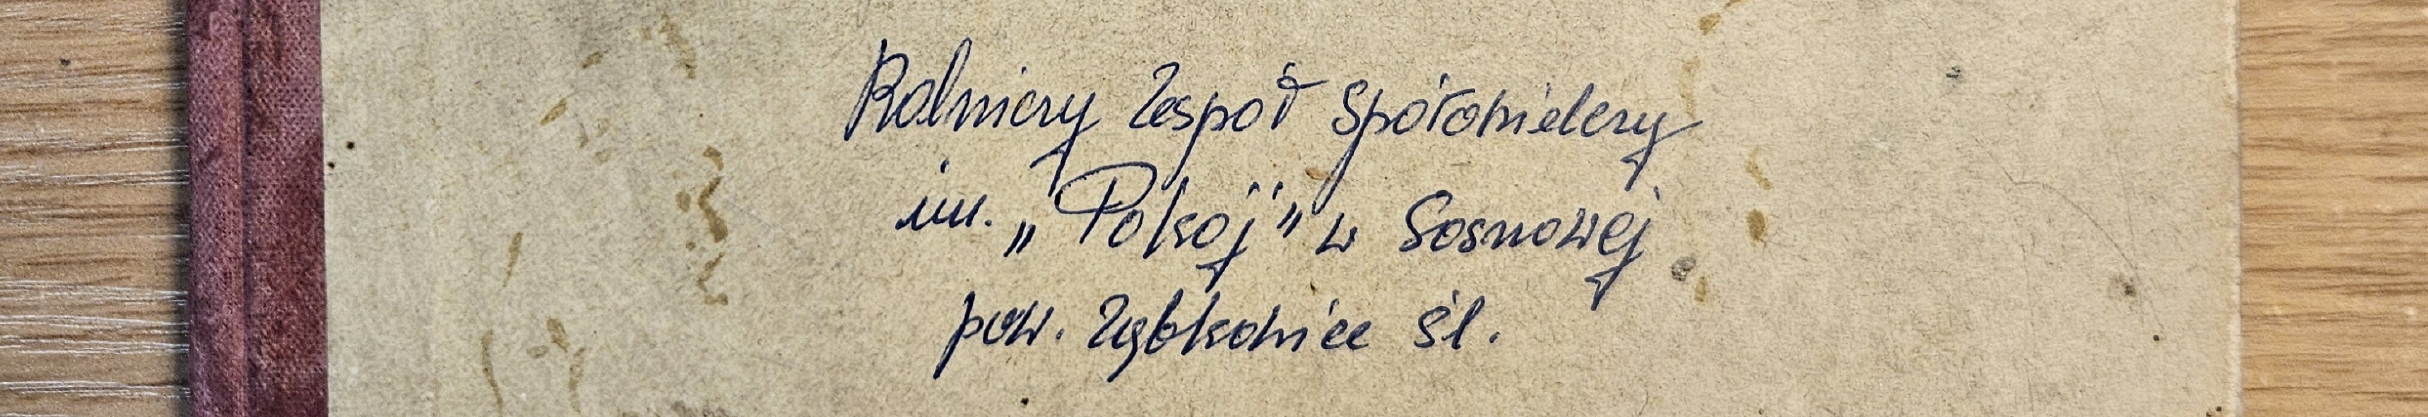 Rolniczy Zespół Spółdzielczy
im. „Pokój" w Sosnowej
pow. Ząbkowice Śl.